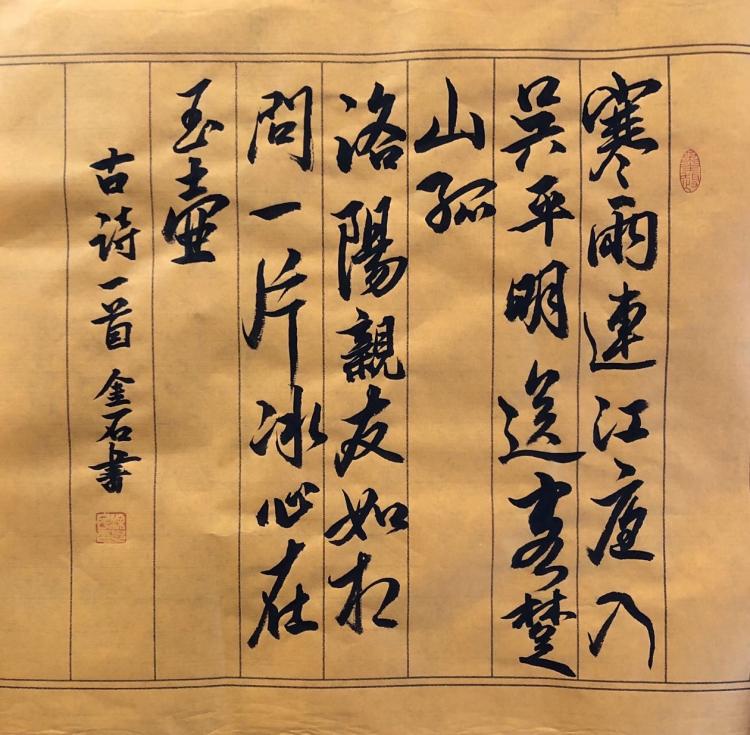 寒雨連江夜入
吴平明送客楚
山孤
洛陽親友如相
問一片冰心在
玉壺
古詩一首 金石書